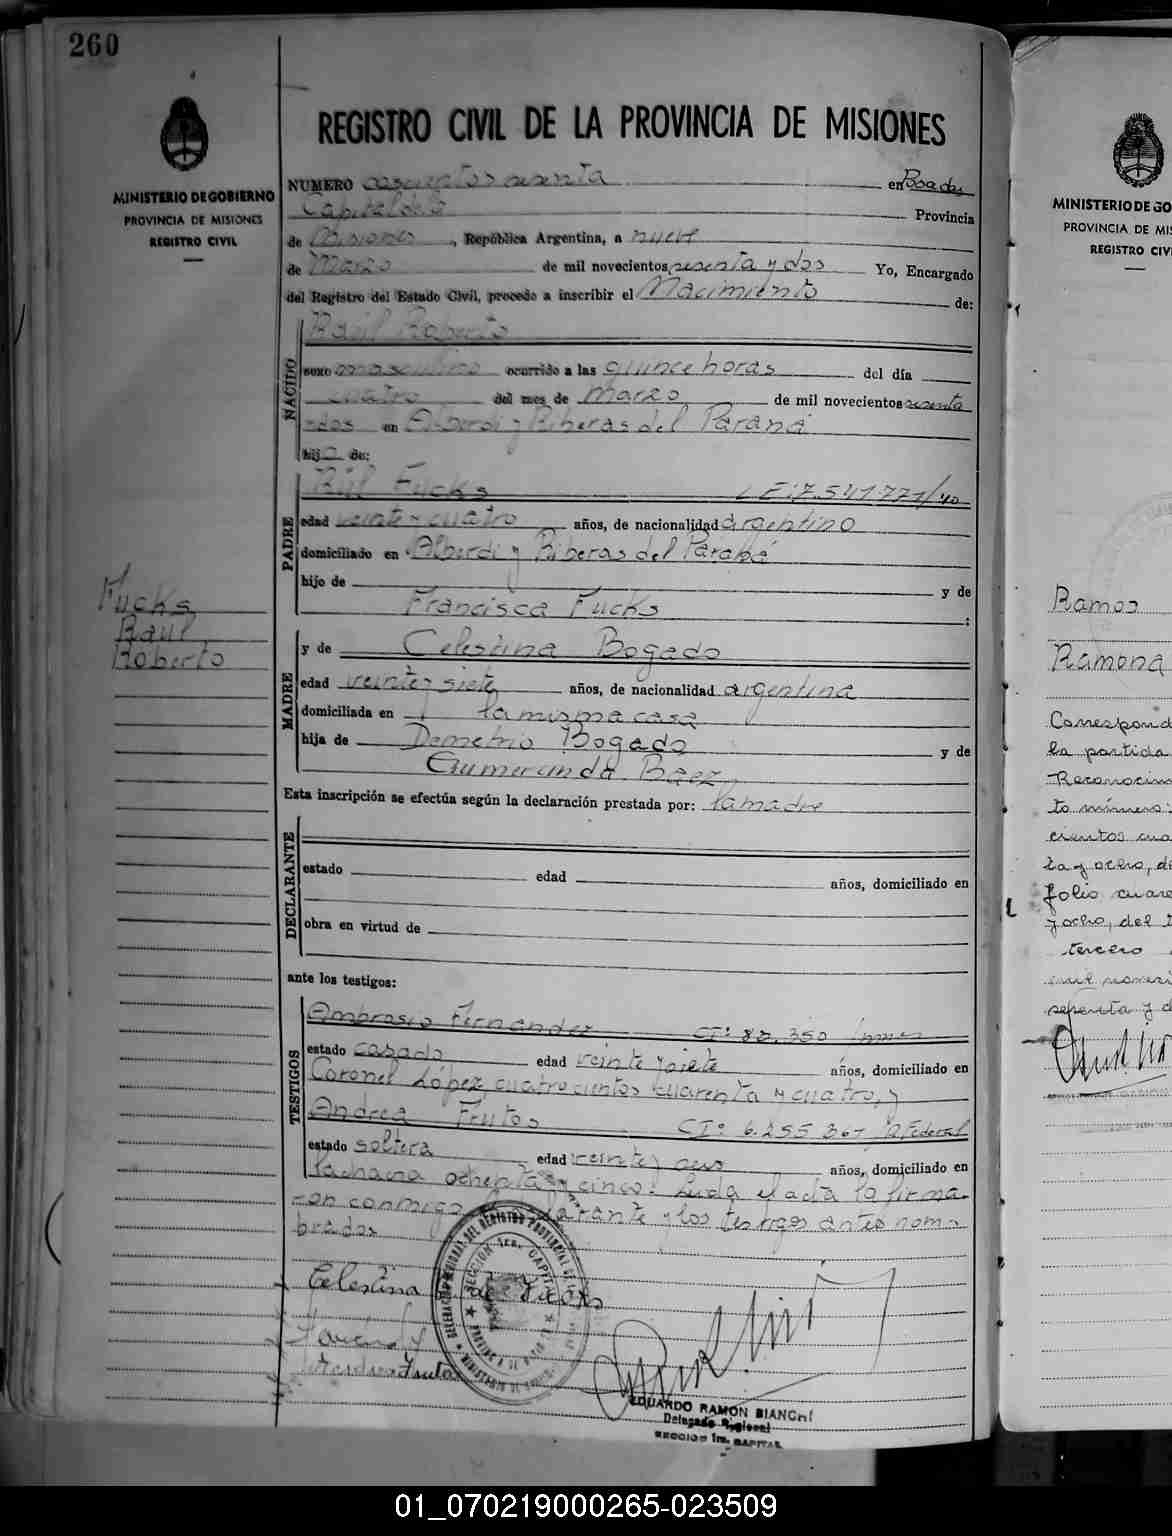 260
MINISTERIO DE GOBIERNO
PROVINCIA DE MISIONES
REGISTRO CIVIL
Fucks
Raúl
Roberto
REGISTRO CIVIL DE LA PROVINCIA DE MISIONES
NUMERO doscientos sesenta en Posadas
Capital de la Provincia
de Misiones, República Argentina, a nueve
de Marzo de mil novecientos sesenta y dos Yo, Encargado
del Registro del Estado Civil, procedo a inscribir el Nacimiento de:
NACIDO
Raúl Roberto
sexo masculino ocurrido a las quince horas del día
cuatro del mes de Marzo de mil novecientos sesenta
y dos en Alberdi y Riberas del Paraná
hijo de:
PADRE
Rúl Fucks L E: 7.541.771/40
edad veinte y cuatro años, de nacionalidad argentino
domiciliado en Alberdi y Riberas del Paraná
hijo de y de
Francisca Fucks :
MADRE
y de Celestina Bogado
edad veinte y siete años, de nacionalidad argentina
domiciliada en la misma casa
hija de Demetrio Bogado y de
Gumercinda Baez
Esta inscripción se efectúa según la declaración prestada por: la madre
DECLARANTE
estado edad años, domiciliado en
obra en virtud de
ante los testigos:
TESTIGOS
Ambrosio Fernandez CI: 82.350
estado casado edad veinte y siete años, domiciliado en
Coronel López cuatrocientos cuarenta y cuatro, y
Andrea Frutos CI: 6.255.367 P Federal
estado soltera edad veinte y seis años, domiciliado en
la chacra ochenta y cinco. Leída el acta la firma-
ron conmigo declarante y los testigos antes nom-
brados
Celestina B. de Fucks
Andrea Frutos
EDUARDO RAMON BIANCHI
Delegado Regional
SECCION 1ra. CAPITAL
MINISTERIO DE GO
PROVINCIA DE MIS
REGISTRO CIVI
Ramos
Ramona
Correspond
la partida
Reconocim
to número:
cientos cua
ta y ocho, de
folio cuare
y ocho, del
tercero
mil noveci
sesenta y d
01_070219000265-023509